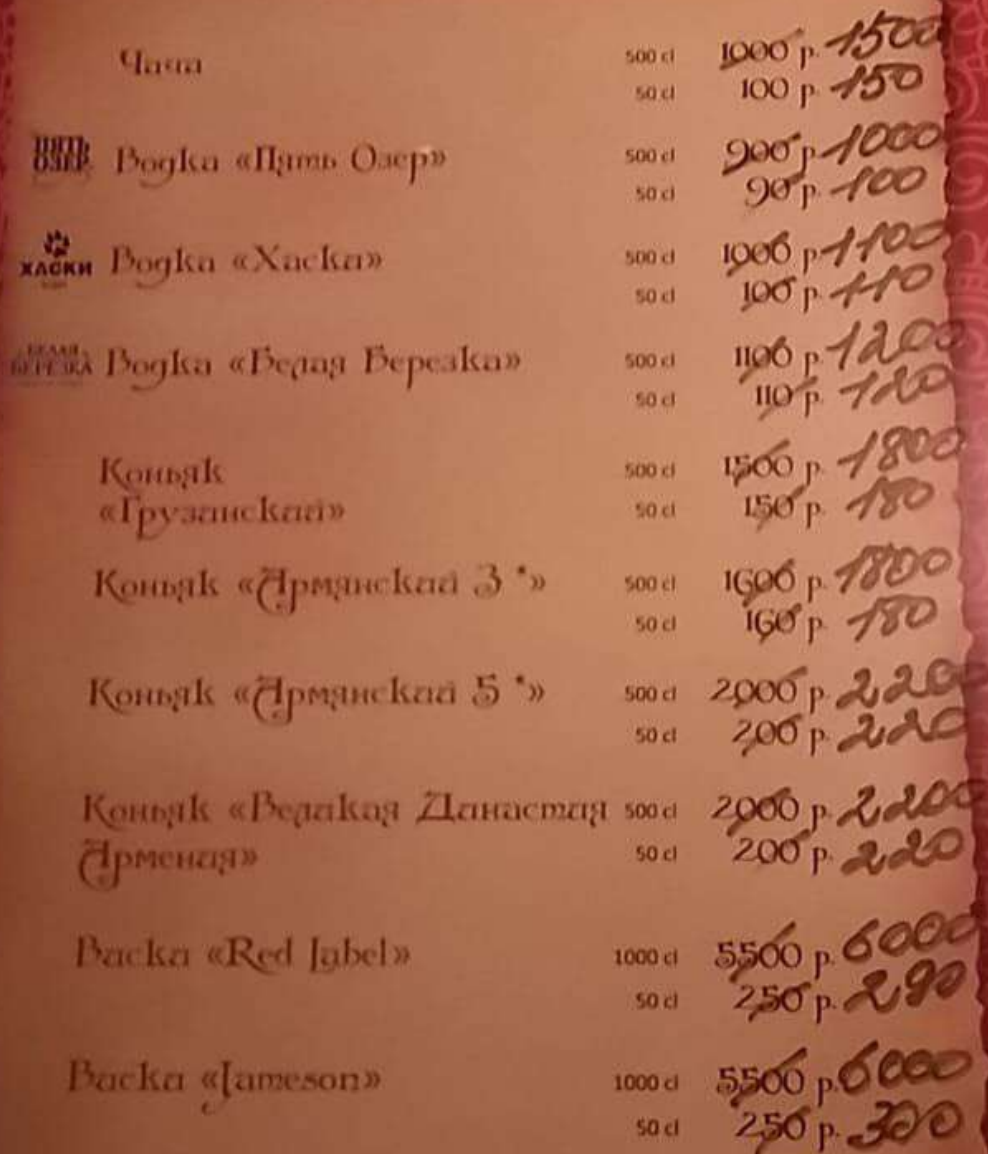 Чача 500 cl 1000 р. 1500
50 cl 100 р. 150
ПЯТЬ
ОЗЕР
Водка «Пять Озер» 500 cl 900 р. 1000
50 cl 90 р. 100
ХАСКИ
Водка «Хаски» 500 cl 1000 р. 1100
50 cl 100 р. 110
БЕЛАЯ
БЕРЕЗКА
Водка «Белая Березка» 500 cl 1100 р. 1200
50 cl 110 р. 120
Коньяк 500 cl 1500 р. 1800
«Грузинский» 50 cl 150 р. 180
Коньяк «Армянский 3 *» 500 cl 1600 р. 1800
50 cl 160 р. 180
Коньяк «Армянский 5 *» 500 cl 2000 р. 2200
50 cl 200 р. 220
Коньяк «Великая Династия 500 cl 2000 р. 2200
Армения» 50 cl 200 р. 220
Виски «Red Label» 1000 cl 5500 р. 6000
50 cl 250 р. 290
Виски «Jameson» 1000 cl 5500 р. 6000
50 cl 250 р. 300